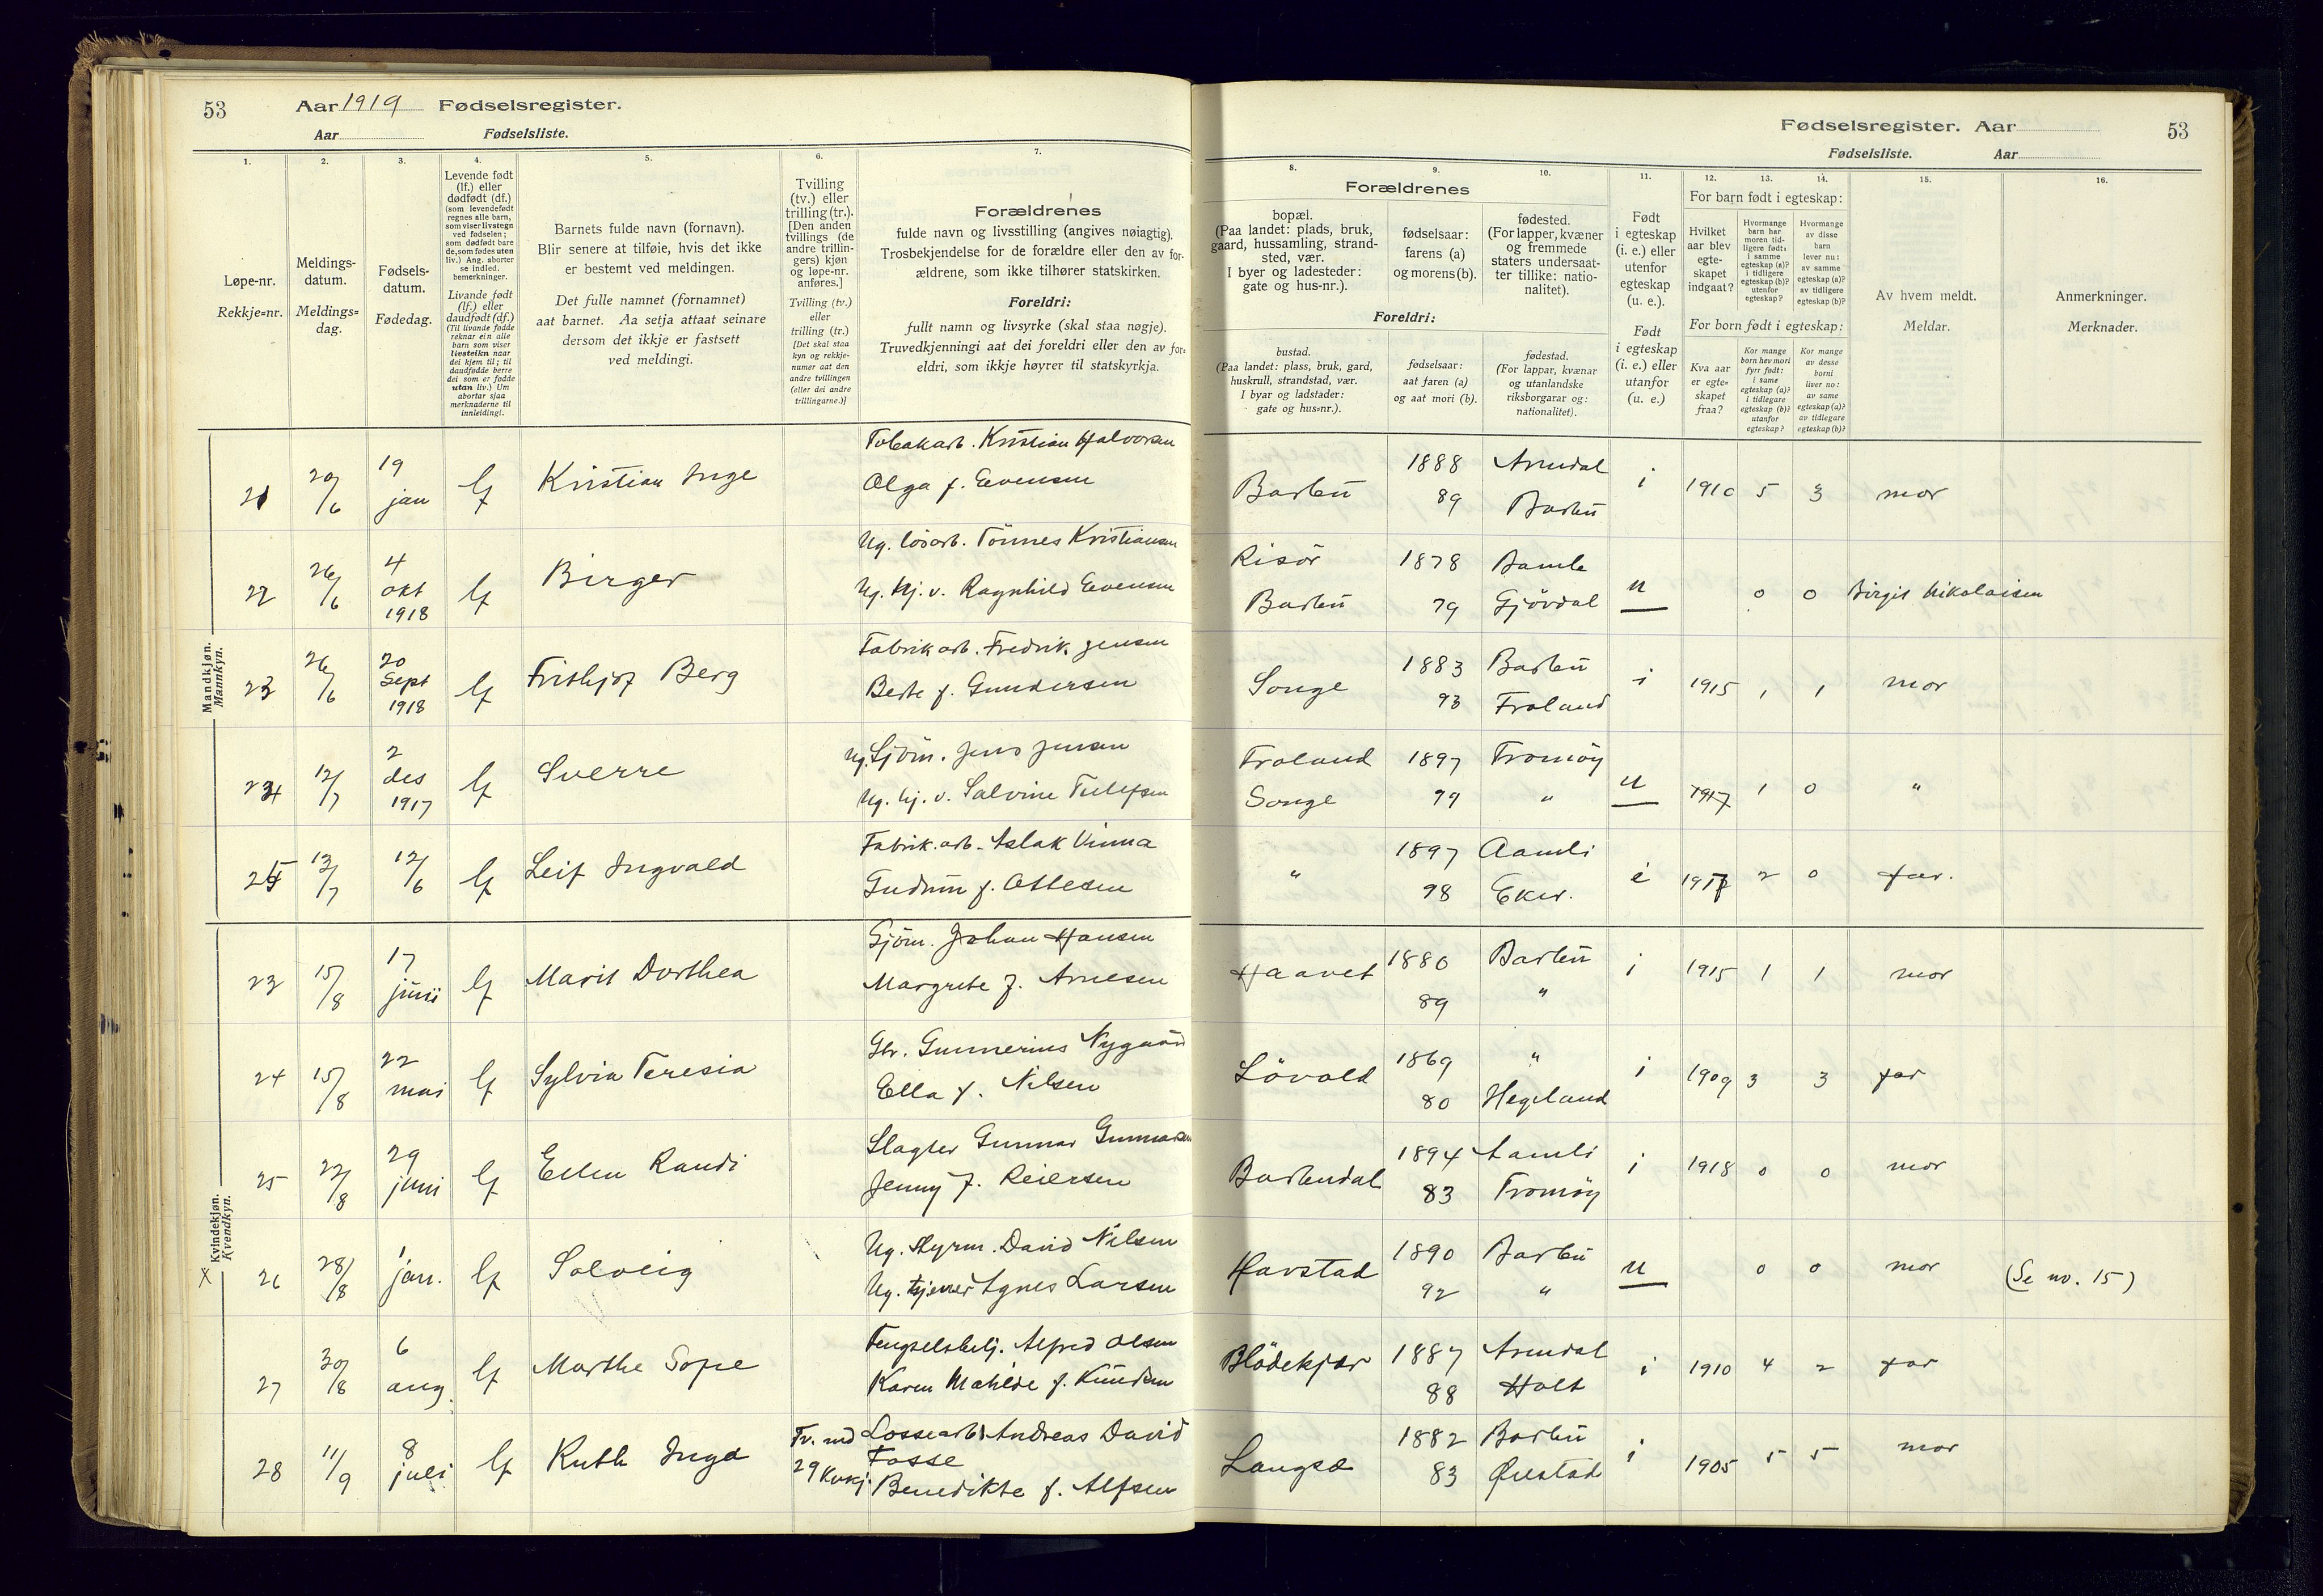 53 Aar 1919 Fødselsregister.
Aar Fødselsliste.
1. 2. 3. 4. 5. 6. 7.
Løpe-nr.
Rekkje=nr.
Meldings-
datum.
Meldings=
dag.
Fødsels-
datum.
Fødedag.
Levende født
(lf.) eller
dødfødt (df.)
(som levendefødt
regnes alle barn,
som viser livstegn
ved fødselen;
som dødfødt bare
de, som fødes uten
liv.) Ang. aborter
se indled.
bemerkninger.
Livande født
(lf.) eller
daudfødt (df.)
(Til livande fødde
reknar ein alle
barn som viser
livsteikn naar
dei kjem til; til
daudfødde berre
dei som er fødde
utan liv.) Um
abortar sjaa
merknaderne til
innleidingi.
Barnets fulde navn (fornavn).
Blir senere at tilføie, hvis det ikke
er bestemt ved meldingen.
Det fulle namnet (fornamnet)
aat barnet. Aa setja attaat seinare
dersom det ikkje er fastsett
ved meldingi.
Tvilling
(tv.) eller
trilling (tr.).
[Den anden
tvillings (de
andre trillin-
gers) kjøn
og løpe-nr.
anføres.]
Tvilling (tv.)
eller
trilling (tr.)
[Det skal staa
kyn og rekkje-
numer aat den
andre tvillingen
(eller dei andre
trillingarne.)]
Forældrenes
fulde navn og livsstilling (angives nøiagtig).
Trosbekjendelse for de forældre eller den av for-
ældrene, som ikke tilhører statskirken.
Foreldri:
fullt namn og livsyrke (skal staa nøgje).
Truvedkjenningi aat dei foreldri eller den av for=
eldri, som ikkje høyrer til statskyrkja.
Fødselsregister. Aar 53
Fødselsliste. Aar
8. 9. 10. 11. 12. 13. 14. 15. 16.
Forældrenes
bopæl.
(Paa landet: plads, bruk,
gaard, hussamling, strand-
sted, vær.
I byer og ladesteder:
gate og hus-nr.).
fødselsaar:
farens (a)
og morens (b).
fødested.
(For lapper, kvæner
og fremmede
staters undersaat-
ter tillike: natio-
nalitet).
Foreldri:
bustad.
(Paa landet: plass, bruk, gard,
huskrull, strandstad, vær.
I byar og ladstader:
gate og hus=nr.).
fødselsaar:
aat faren (a)
og aat mori (b).
fødestad.
(For lappar, kvænar
og utanlandske
riksborgarar og:
nationalitet).
Født
i egteskap
(i. e.) eller
utenfor
egteskap
(u. e.).
Født
i egteskap
(i. e.) eller
utanfor
(u. e.)
For barn født i egteskap:
Hvilket
aar blev
egte-
skapet
indgaat?
Hvormange
barn har
moren tid-
ligere født:
i samme
egteskap (a)?
i tidligere
egteskap (b)?
utenfor
egteskap?
Hvormange
av disse
barn
lever nu:
av samme
egteskap (a)?
av tidligere
egteskap (b)?
For born født i egteskap:
Kva aar
er egte=
skapet
fraa?
Kor mange
born hev mori
fyrr født:
i same
egteskap (a)?
i tidlegare
egteskap (b)?
utanfor
egteskap?
Kor mange
av desse
borni
liver no:
av same
egteskap (a)?
av tidlegare
egteskap (b)?
Av hvem meldt.
Meldar.
Anmerkninger.
Merknader.
Mandkjøn.
Mannkyn.
21 20/6 19 jan lf Kristian Inge Tobakarb. Kristian Halvorsen
Olga f. Evensen
Barbu 1888 Arendal i 1910 5 3 mor
89 Barbu
22 26/6 4 okt 1918 lf Birger Ug. løsarb. Tönnes Kristiansen
Ug. hj. v. Ragnhild Evensen
Risör 1878 Bamle u 0 0 Birgit Nikolaisen
Barbu 79 Gjövdal
23 26/6 20 Sept 1918 lf Frithjof Berg Fabrikarb. Fredrik Jensen
Berte f. Gundersen
Songe 1883 Barbu i 1915 1 1 mor
93 Froland
24 12/7 2 des 1917 lf Sverre Ug. Sjöm. Jens Jensen
Ug. hj. v. Salvine Tellefsen
Froland 1897 Tromöy u 1917 1 0 "
Songe 99 "
25 13/7 12/6 lf Leif Ingvald Fabrik.arb. Aslak Vinna
Gudrun f. Ottesen
" 1897 Aamli i 1917 2 0 far.
98 Eker.
Kvindekjøn.
Kvendkyn.
23 15/8 17 juni lf Marit Dorthea Sjöm. Johan Hansen
Margrete f. Arnesen
Haavet 1880 Barbu i 1915 1 1 mor
89 "
24 15/8 22 mai lf Sylvia Teresia Gbr. Gunnerius Nygaard
Ella f. Nilsen
Lövold 1869 " i 1909 3 3 far
80 Hegeland
25 22/8 29 juni lf Ellen Randi Slagter Gunnar Gunnarsen
Jenny f. Reiersen
Barbudal 1894 Aamli i 1918 0 0 mor
83 Tromöy
X 26 28/8 1 jan. lf Solveig Ug. Styrm. David Nilsen
Ug. tjener Agnes Larsen
Havstad 1890 Barbu u 0 0 mor (Se no. 15)
92 "
27 30/8 6 aug. lf Marthe Sofie Fengselsbetj. Alfred Olsen
Karen Mathilde f. Knudsen
Blödekjær 1887 Arendal i 1910 4 2 far
88 Holt
28 11/9 8 juli lf Ruth Inga Tv. md 29 Kvkj. Lossearb. Andreas David
Fosse
Benedikte f. Alfsen
Langsæ 1882 Barbu i 1905 5 5 mor
83 Øiestad